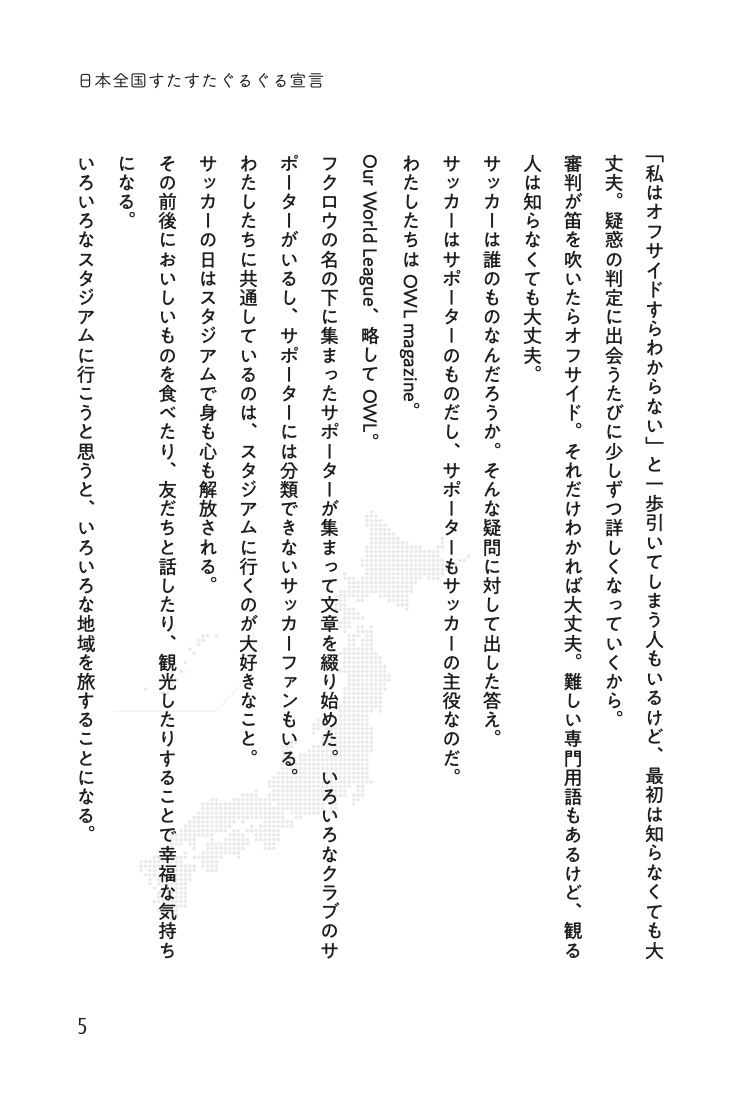 日本全国すたすたぐるぐる宣言
「私はオフサイドすらわからない」と一歩引いてしまう人もいるけど、最初は知らなくても大
丈夫。疑惑の判定に出会うたびに少しずつ詳しくなっていくから。
審判が笛を吹いたらオフサイド。それだけわかれば大丈夫。難しい専門用語もあるけど、観る
人は知らなくても大丈夫。
サッカーは誰のものなんだろうか。そんな疑問に対して出した答え。
サッカーはサポーターのものだし、サポーターもサッカーの主役なのだ。
わたしたちは OWL magazine。
Our World League、略して OWL。
フクロウの名の下に集まったサポーターが集まって文章を綴り始めた。いろいろなクラブのサ
ポーターがいるし、サポーターには分類できないサッカーファンもいる。
わたしたちに共通しているのは、スタジアムに行くのが大好きなこと。
サッカーの日はスタジアムで身も心も解放される。
その前後においしいものを食べたり、友だちと話したり、観光したりすることで幸福な気持ち
になる。
いろいろなスタジアムに行こうと思うと、いろいろな地域を旅することになる。
5